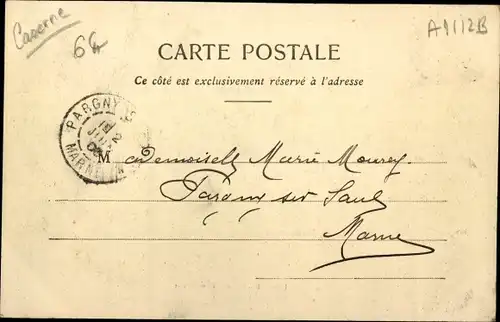 Caserne
A9112B
CARTE POSTALE
Ce côté est exclusivement réservé à l'adresse
PARGNY
MARNE
Mademoiselle Marie Mourey
Pargny sur Saulx
Marne